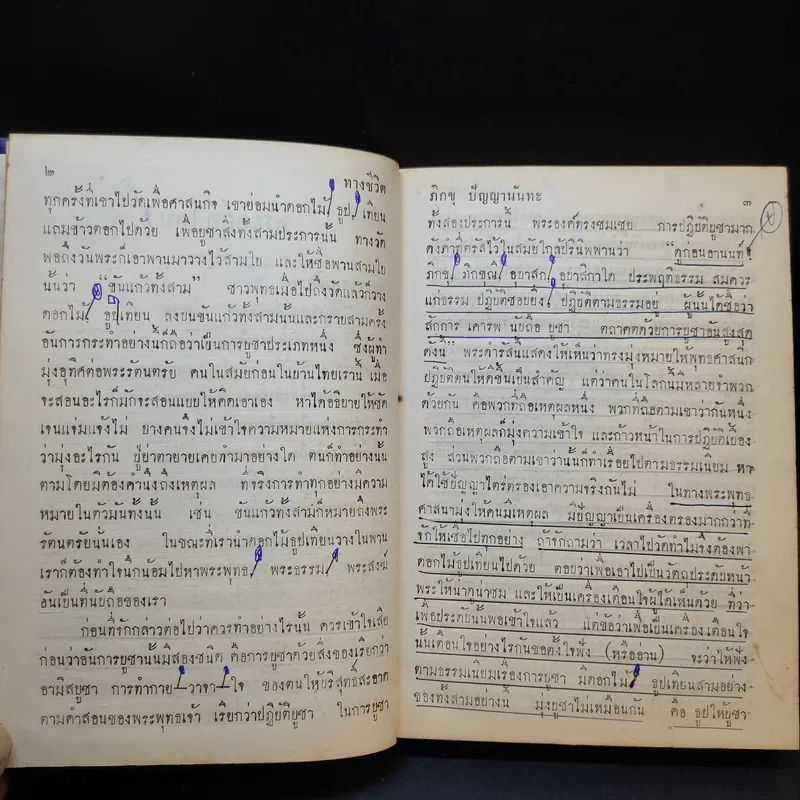 ๒
ทางชีวิต
ทุกครั้งที่เขาไปวัดเพื่อศาสนกิจ เขาย่อมนำดอกไม้ ธูป เทียน
แถมข้าวตอกไปด้วย เพื่อบูชาสิ่งทั้งสามประการนั้น ทางวัด
พอถึงวันพระก็เอาพานมาวางไว้สามใบ และให้ชื่อพานสามใบ
นั้นว่า “ขันแก้วทั้งสาม” ชาวพุทธเมื่อไปถึงวัดแล้วก็วาง
ดอกไม้ ธูปเทียน ลงบนขันแก้วทั้งสามนั้นและกราบสามครั้ง
อันการกระทำอย่างนี้ก็ถือว่าเป็นการบูชาประเภทหนึ่ง ซึ่งผู้ทำ
มุ่งอุทิศต่อพระรัตนตรัย คนในสมัยก่อนในบ้านไทยเรานี้ เมื่อ
จะสอนอะไรก็มักจะสอนแบบให้คิดเอาเอง หาได้อธิบายให้ชัด
เจนแจ่มแจ้งไม่ บางคนจึงไม่เข้าใจความหมายแห่งการกระทำ
ว่ามุ่งอะไรกัน ปู่ย่าตายายเคยทำมาอย่างใด ตนก็ทำอย่างนั้น
ตามโดยมิต้องคำนึงถึงเหตุผล ที่จริงการทำทุกอย่างมีความ
หมายในตัวมันทั้งนั้น เช่น ขันแก้วทั้งสามก็หมายถึงพระ
รัตนตรัยนั่นเอง ในขณะที่เรานำดอกไม้ธูปเทียนวางในพาน
เราก็ต้องทำใจนึกน้อมไปหาพระพุทธ พระธรรม พระสงฆ์
อันเป็นที่นับถือของเรา
ก่อนที่จักกล่าวต่อไปว่าควรทำอย่างไรนั้น ควรเข้าใจเสีย
ก่อนว่าอันการบูชานั้นมีสองชนิด คือการบูชาด้วยสิ่งของเรียกว่า
อามิสบูชา การทำกาย วาจา ใจ ของตนให้บริสุทธิ์สะอาด
ตามคำสอนของพระพุทธเจ้า เรียกว่าปฏิบัติบูชา ในการบูชา
ภิกขุ ปัญญานันทะ
๓
ทั้งสองประการนี้ พระองค์ทรงชมเชย การปฏิบัติบูชามาก
ดังคำที่ตรัสไว้ในสมัยใกล้ปรินิพพานว่า “ดูก่อนอานนท์
ภิกษุ ภิกษุณี อุบาสก อุบาสิกาใด ประพฤติธรรม สมควร
แก่ธรรม ปฏิบัติชอบยิ่ง ปฏิบัติตามธรรมอยู่ ผู้นั้นได้ชื่อว่า
สักการ เคารพ นับถือ บูชา ตถาคตด้วยการบูชาอันสูงสุด
ดังนี้” พระดำรัสนี้แสดงให้เห็นว่าทรงมุ่งหมายให้พุทธศาสนิก
ปฏิบัติตนให้ดีขึ้นเป็นสำคัญ แต่ว่าคนในโลกนี้มีหลายจำพวก
ด้วยกัน คือพวกที่ถือเหตุผลหนึ่ง พวกที่ถือตามเขาว่ากันหนึ่ง
พวกถือเหตุผลก็มุ่งความเข้าใจ และก้าวหน้าในการปฏิบัติเบื้อง
สูง ส่วนพวกถือตามเขาว่านั้นก็ทำเรื่อยไปตามธรรมเนียม หา
ได้ใช้ปัญญาไตร่ตรองเอาความจริงกันไม่ ในทางพระพุทธ
ศาสนามุ่งให้คนมีเหตุผล มีปัญญาเป็นเครื่องตรองมากกว่าที่
จักให้เชื่อไปทุกอย่าง ถ้าจักถามว่า เวลาไปวัดทำไมจึงต้องพา
ดอกไม้ธูปเทียนไปด้วย ตอบว่าเพื่อเอาไปเป็นวัตถุประดับหน้า
พระให้น่าดูน่าชม และให้เป็นเครื่องเตือนใจผู้ได้เห็นด้วย ที่ว่า
เพื่อประดับนั้นพอเข้าใจแล้ว แต่ข้อว่าเพื่อเป็นเครื่องเตือนใจ
นั้นเตือนใจอย่างไรกันขอตั้งใจฟัง (หรืออ่าน) จะว่าให้ฟัง
ตามธรรมเนียมเรื่องการบูชา มีดอกไม้ ธูปเทียนสามอย่าง
ของทั้งสามอย่างนี้ มุ่งบูชาไม่เหมือนกัน คือ ธูปให้บูชา